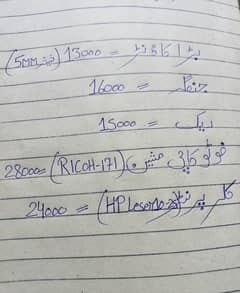 بڑا کاؤنٹر = 13000 (5MM)
16000 =
ریک = 15000
فوٹو کاپی مشین (RICOH-171) = 28000
کلر پرنٹر (HP Leser) = 24000